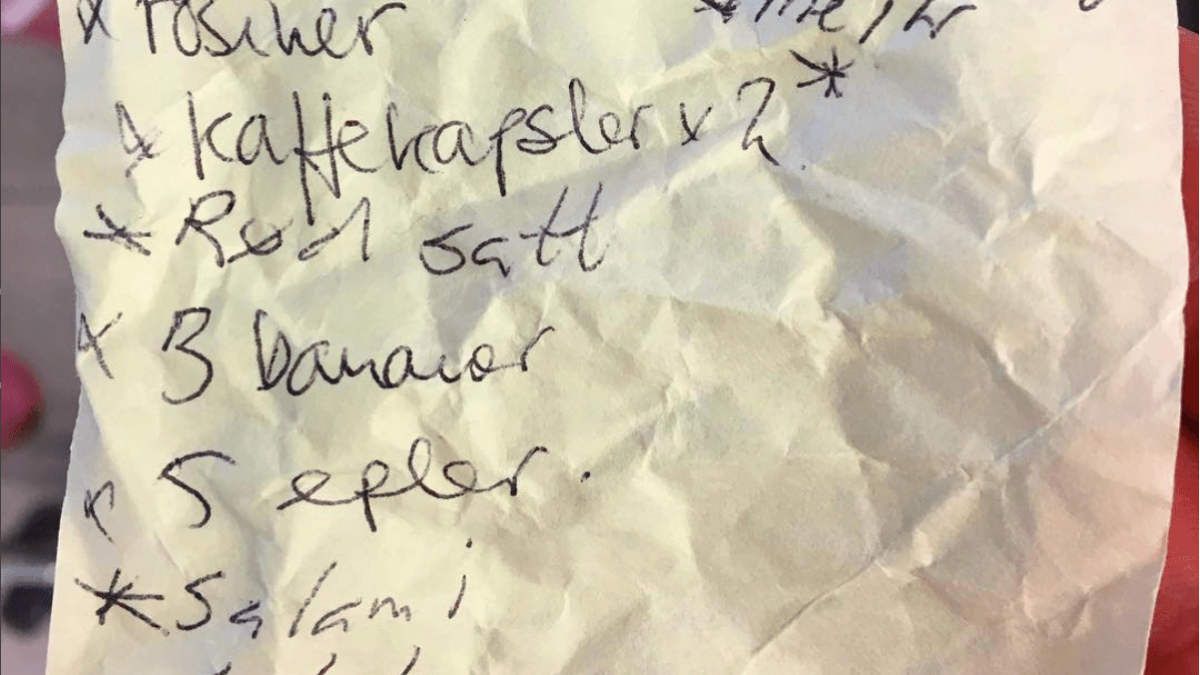 * kaffekapsler x 2 *
* Rød saft
* 3 bananer
* 5 epler.
* Salami